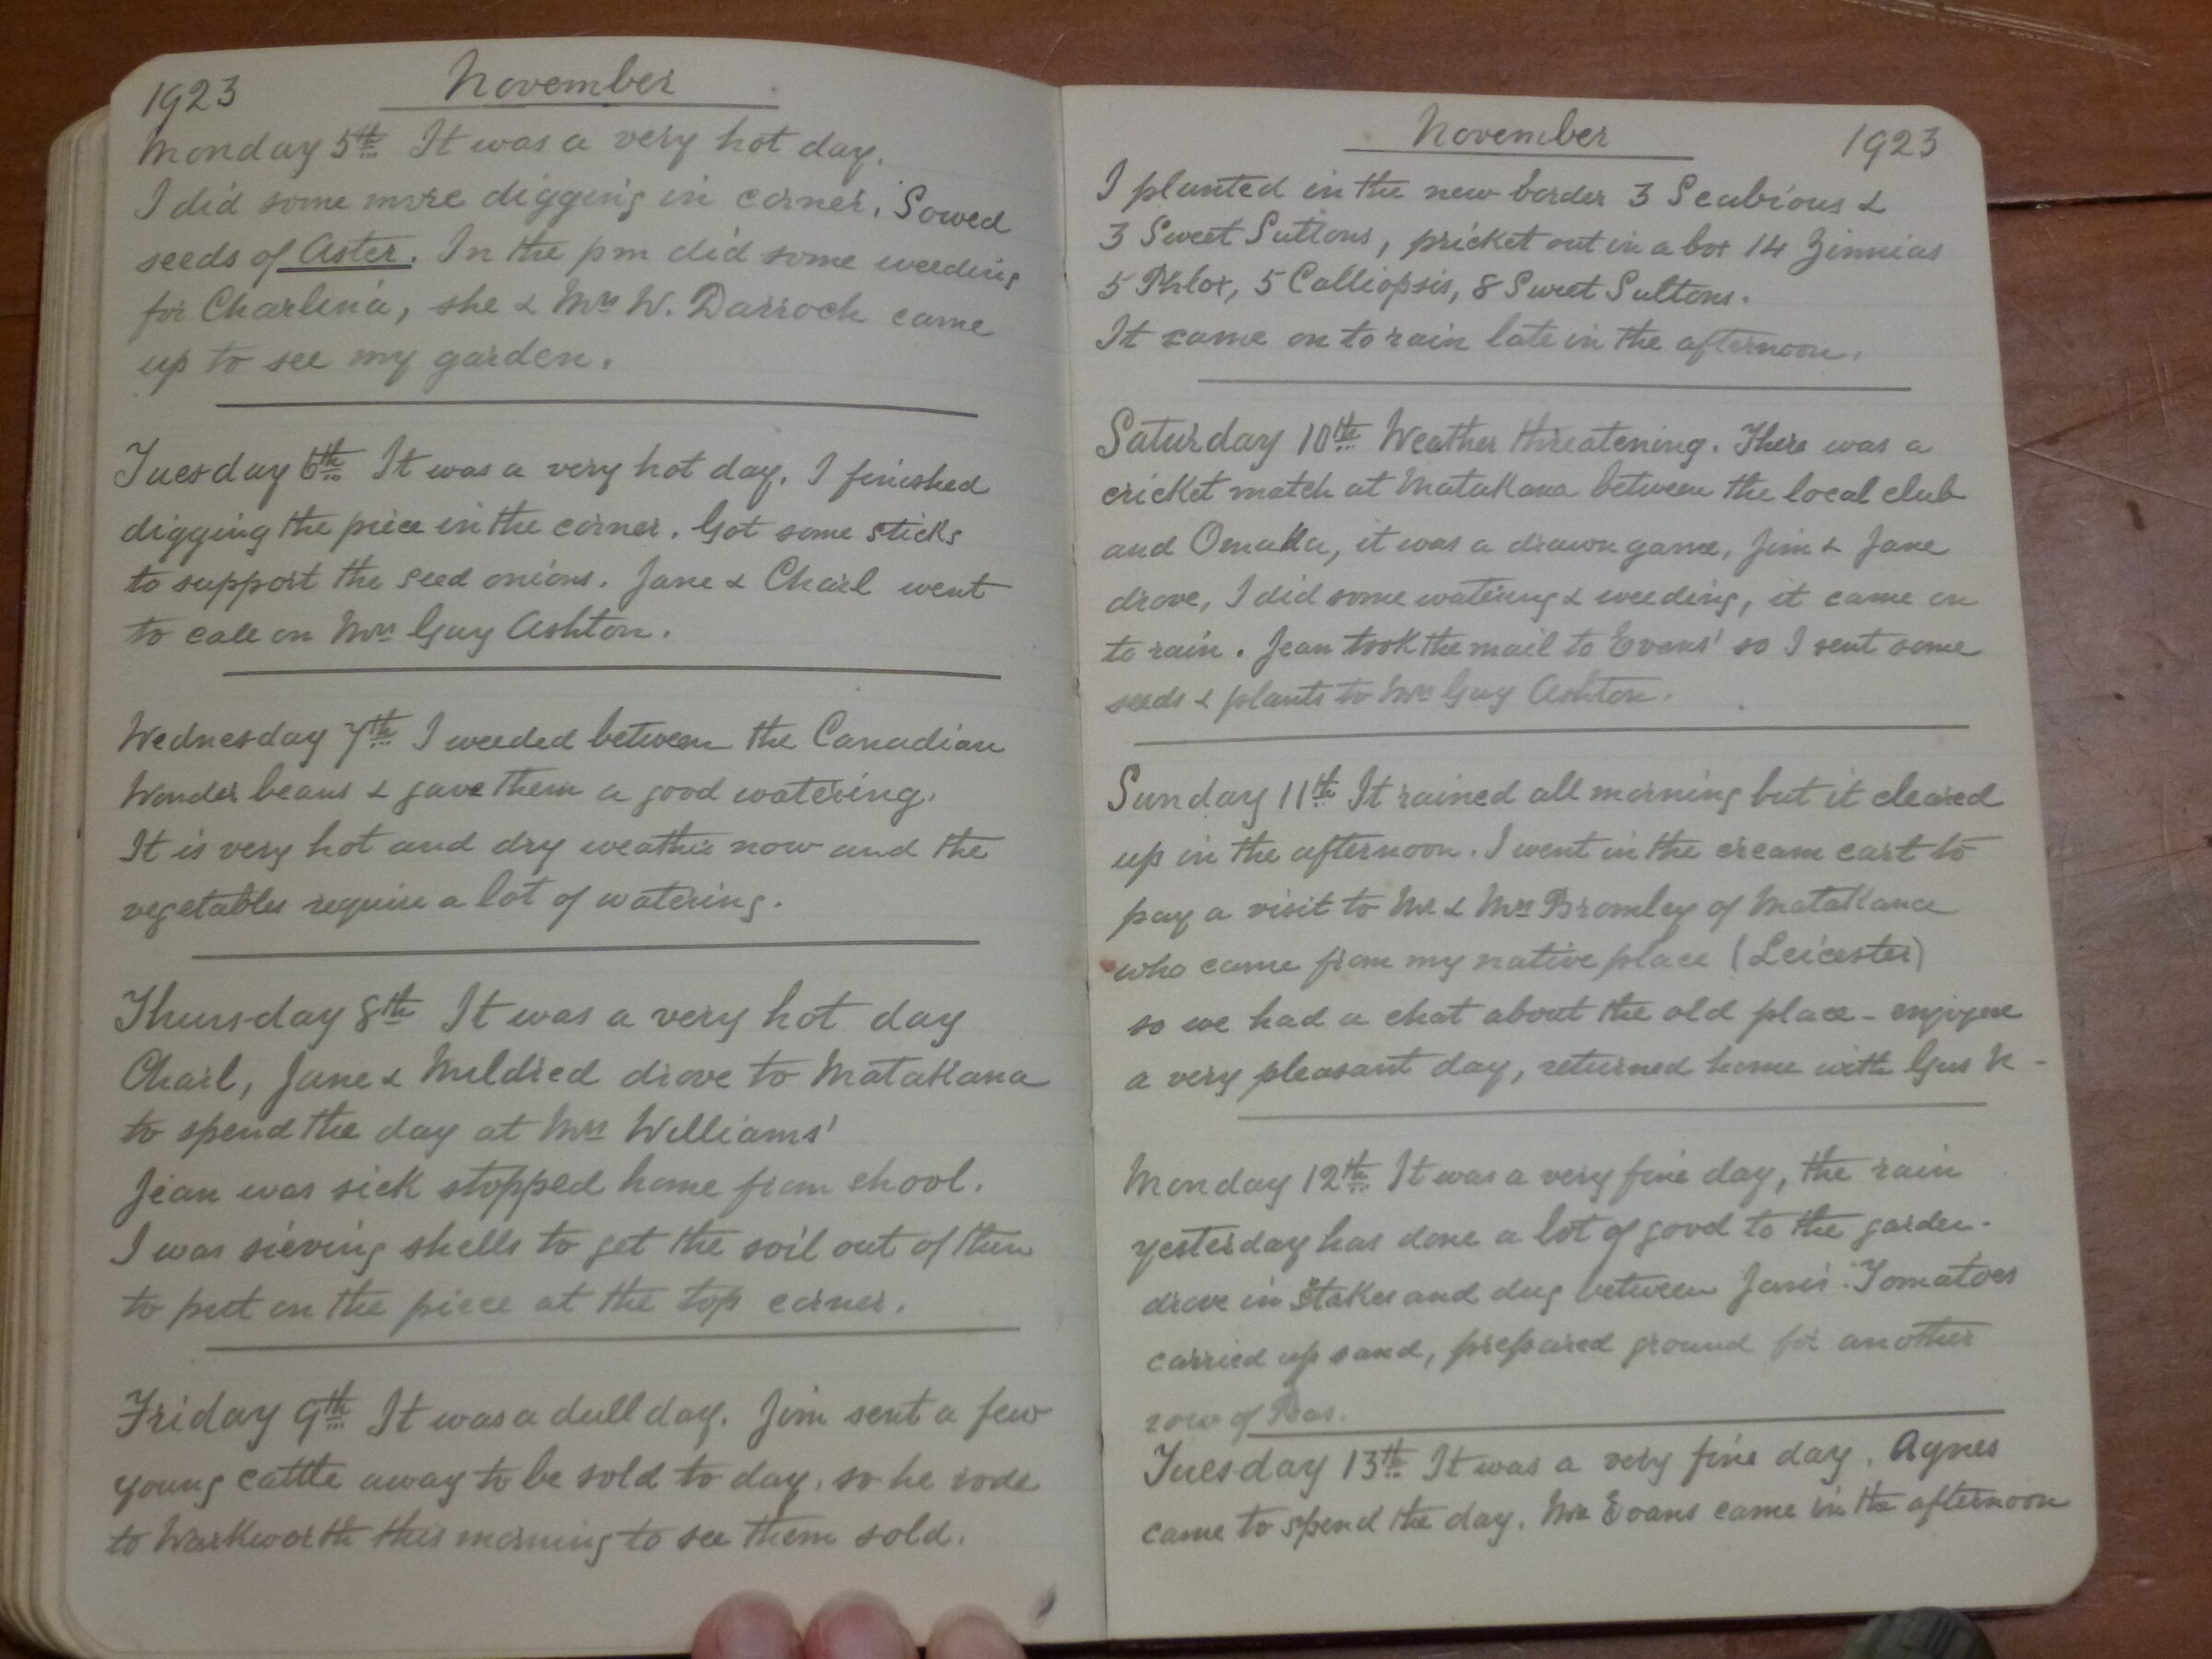 1923 November
Monday 5th It was a very hot day.
I did some more digging in corner. Sowed
seeds of Aster. In the pm did some weeding
for Charlina, she & Mrs W. Darroch came
up to see my garden.
Tuesday 6th It was a very hot day. I finished
digging the piece in the corner. Got some sticks
to support the seed onions. Jane & Charl went
to call on Mrs Guy Ashton.
Wednesday 7th I weeded between the Canadian
Wonder beans & gave them a good watering.
It is very hot and dry weather now and the
vegetables require a lot of watering.
Thursday 8th It was a very hot day
Charl, Jane & Mildred drove to Matakana
to spend the day at Mrs Williams'
Jean was sick stopped home from chool.
I was sieving shells to get the soil out of them
to put on the piece at the top corner.
Friday 9th It was a dull day. Jim sent a few
young cattle away to be sold to day, so he rode
to Warkworth this morning to see them sold.
November 1923
I planted in the new border 3 Scabious &
3 Sweet Suttons, pricket out in a box 14 Zinnias
5 Phlox, 5 Calliopsis, 8 Sweet Sultons.
It came on to rain late in the afternoon.
Saturday 10th Weather threatening. There was a
cricket match at Matakana between the local club
and Omaha, it was a drawn game, Jim & Jane
drove, I did some watering & weeding, it came on
to rain. Jean took the mail to Evans' so I sent some
seeds & plants to Mrs Guy Ashton.
Sunday 11th It rained all morning but it cleared
up in the afternoon. I went in the cream cart to
pay a visit to Mr & Mrs Bromley of Matakana
who came from my native place (Leicester)
so we had a chat about the old place - enjoyed
a very pleasant day, returned home with Gus K -
Monday 12th It was a very fine day, the rain
yesterday has done a lot of good to the garden.
drove in stakes and dug between Jane's Tomatoes
carried up sand, prepared ground for another
row of Peas.
Tuesday 13th It was a very fine day. Agnes
came to spend the day. Mrs Evans came in the afternoon